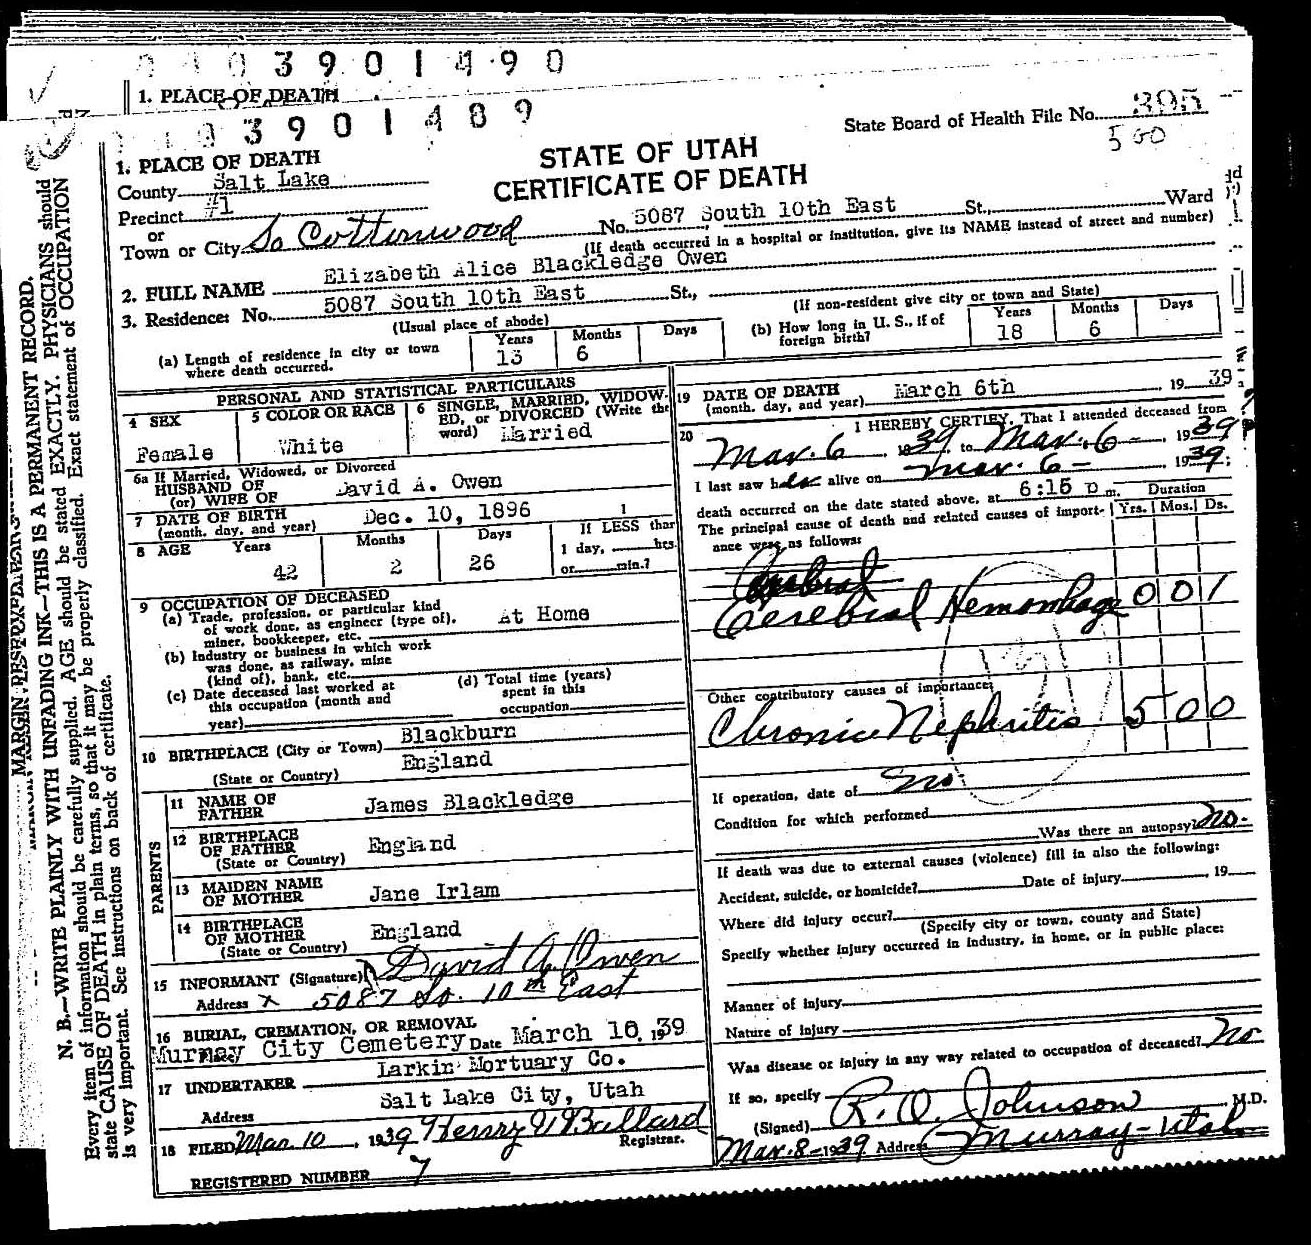 3901490
1. PLACE OF DEATH
3901489
State Board of Health File No. 395
500
STATE OF UTAH
CERTIFICATE OF DEATH
1. PLACE OF DEATH
County Salt Lake
Precinct #1
or
Town or City So Cottonwood No. 5087 South 10th East St., Ward
(If death occurred in a hospital or institution, give its NAME instead of street and number)
2. FULL NAME Elizabeth Alice Blackledge Owen
3. Residence: No. 5087 South 10th East St.,
(Usual place of abode) (If non-resident give city or town and State)
(a) Length of residence in city or town where death occurred. Years 13 Months 6 Days
(b) How long in U. S., if of foreign birth? Years 18 Months 6 Days
PERSONAL AND STATISTICAL PARTICULARS
4 SEX Female
5 COLOR OR RACE White
6 SINGLE, MARRIED, WIDOW-
ED, or DIVORCED (Write the
word) Married
6a If Married, Widowed, or Divorced
HUSBAND OF
(or) WIFE OF David A. Owen
7 DATE OF BIRTH
(month, day, and year) Dec. 10, 1896
8 AGE Years 42 Months 2 Days 26
If LESS than
1 day, hrs.
or min.?
9 OCCUPATION OF DECEASED
(a) Trade, profession, or particular kind
of work done, as engineer (type of),
miner, bookkeeper, etc. At Home
(b) Industry or business in which work
was done, as railway, mine
(kind of), bank, etc.
(c) Date deceased last worked at
this occupation (month and
year)
(d) Total time (years)
spent in this
occupation
10 BIRTHPLACE (City or Town) Blackburn
(State or Country) England
PARENTS
11 NAME OF
FATHER James Blackledge
12 BIRTHPLACE
OF FATHER England
(State or Country)
13 MAIDEN NAME
OF MOTHER Jane Irlam
14 BIRTHPLACE
OF MOTHER England
(State or Country)
15 INFORMANT (Signature) David A. Owen
Address X 5087 So. 10th East
16 BURIAL, CREMATION, OR REMOVAL
Murray City Cemetery Date March 10, 1939
17 UNDERTAKER Larkin Mortuary Co.
Address Salt Lake City, Utah
18 FILED Mar 10, 1939 Henry W Ballard
Registrar.
REGISTERED NUMBER 7
19 DATE OF DEATH
(month, day, and year) March 6th 1939
20 I HEREBY CERTIFY, That I attended deceased from
Mar. 6, 1939 to Mar. 6-, 1939
I last saw her alive on Mar. 6- 1939;
death occurred on the date stated above, at 6:15 p m.
The principal cause of death and related causes of import-
ance were as follows:
Duration
Yrs. Mos. Ds.
Cerebral
Cerebral Hemorrhage 0 0 1
Other contributory causes of importance:
Chronic Nephritis 5 0 0
If operation, date of no
Condition for which performed
Was there an autopsy? No.
If death was due to external causes (violence) fill in also the following:
Accident, suicide, or homicide? Date of injury , 19
Where did injury occur?
(Specify city or town, county and State)
Specify whether injury occurred in industry, in home, or in public place:
Manner of injury
Nature of injury
Was disease or injury in any way related to occupation of deceased? No
If so, specify
(Signed) R. O. Johnson, M.D.
Mar. 8-1939 Address Murray-Utah
MARGIN RESERVED FOR
N. B.—WRITE PLAINLY WITH UNFADING INK—THIS IS A PERMANENT RECORD.
Every item of information should be carefully supplied. AGE should be stated EXACTLY. PHYSICIANS should
state CAUSE OF DEATH in plain terms, so that it may be properly classified. Exact statement of OCCUPATION
is very important. See instructions on back of certificate.